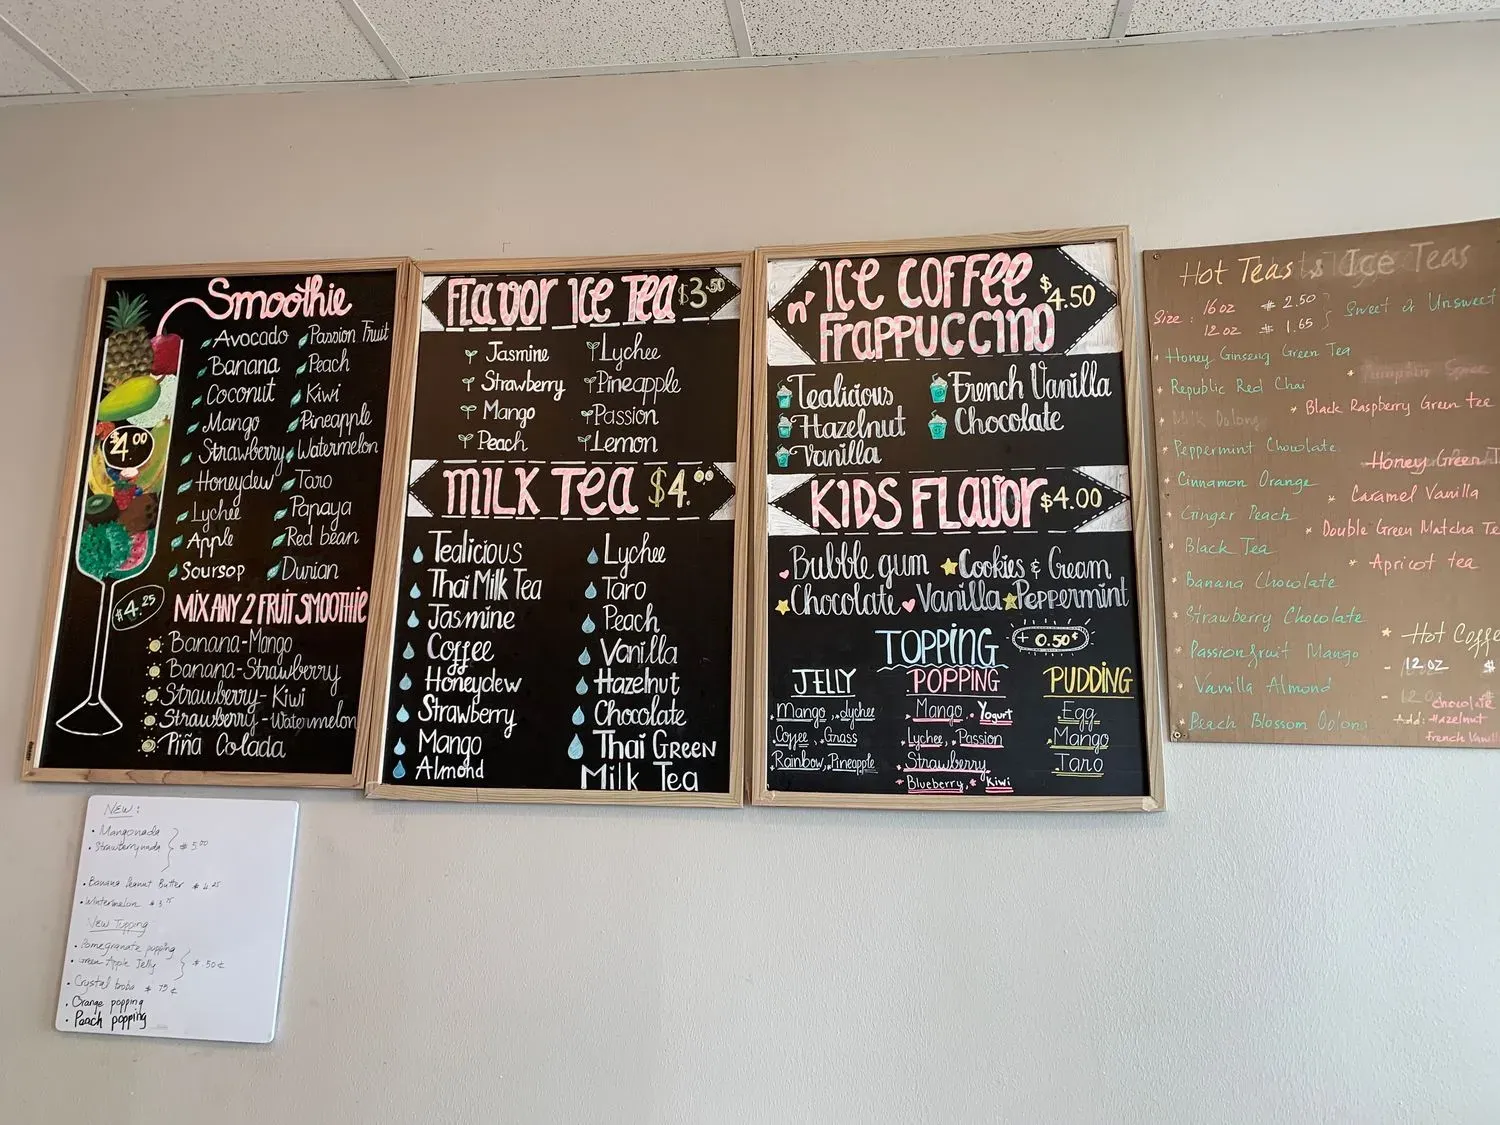 Smoothie
Avocado Passion Fruit
Banana Peach
Coconut Kiwi
Mango Pineapple
$4.00
Strawberry Watermelon
Honeydew Taro
Lychee Papaya
Apple Red bean
Soursop Durian
$4.25
MIX ANY 2 FRUIT SMOOTHIE
Banana-Mango
Banana-Strawberry
Strawberry-Kiwi
Strawberry-Watermelon
Piña Colada
FLAVOR ICE TEA $3.50
Jasmine Lychee
Strawberry Pineapple
Mango Passion
Peach Lemon
MILK TEA $4.00
Tealicious Lychee
Thai Milk Tea Taro
Jasmine Peach
Coffee Vanilla
Honeydew Hazelnut
Strawberry Chocolate
Mango Thai GREEN
Almond Milk Tea
ICE COFFEE $4.50
n' FRAPPUCCINO
Tealicious French Vanilla
Hazelnut Chocolate
Vanilla
KIDS FLAVOR $4.00
Bubble gum Cookies & Cream
Chocolate Vanilla Peppermint
TOPPING + 0.50¢
JELLY POPPING PUDDING
Mango, Lychee Mango, Yogurt Egg
Coffee, Grass Lychee, Passion Mango
Rainbow, Pineapple Strawberry Taro
Blueberry, Kiwi
Hot Teas & Ice Teas
Size: 16 oz $ 2.50 Sweet or Unsweet
12 oz $ 1.65
* Honey Ginseng Green Tea
* Republic Red Chai * Pumpkin Spice
Milk Oolong * Black Raspberry Green tea
* Peppermint Chocolate Honey Green
* Cinnamon Orange * Caramel Vanilla
* Ginger Peach * Double Green Matcha Te
* Black Tea * Apricot tea
* Banana Chocolate
* Strawberry Chocolate
* Passionfruit Mango * Hot Coffe
* Vanilla Almond - 12 oz $
* Peach Blossom Oolong Add: chocolate
Hazelnut
French Vanill
NEW:
• Mangonada
• Strawberrynada $ 5.00
• Banana Peanut Butter $ 4.25
• Wintermelon $ 3.75
New Topping
• Pomegranate popping
• Green Apple Jelly $ .50¢
• Crystal boba $ 75¢
• Orange popping
• Peach popping